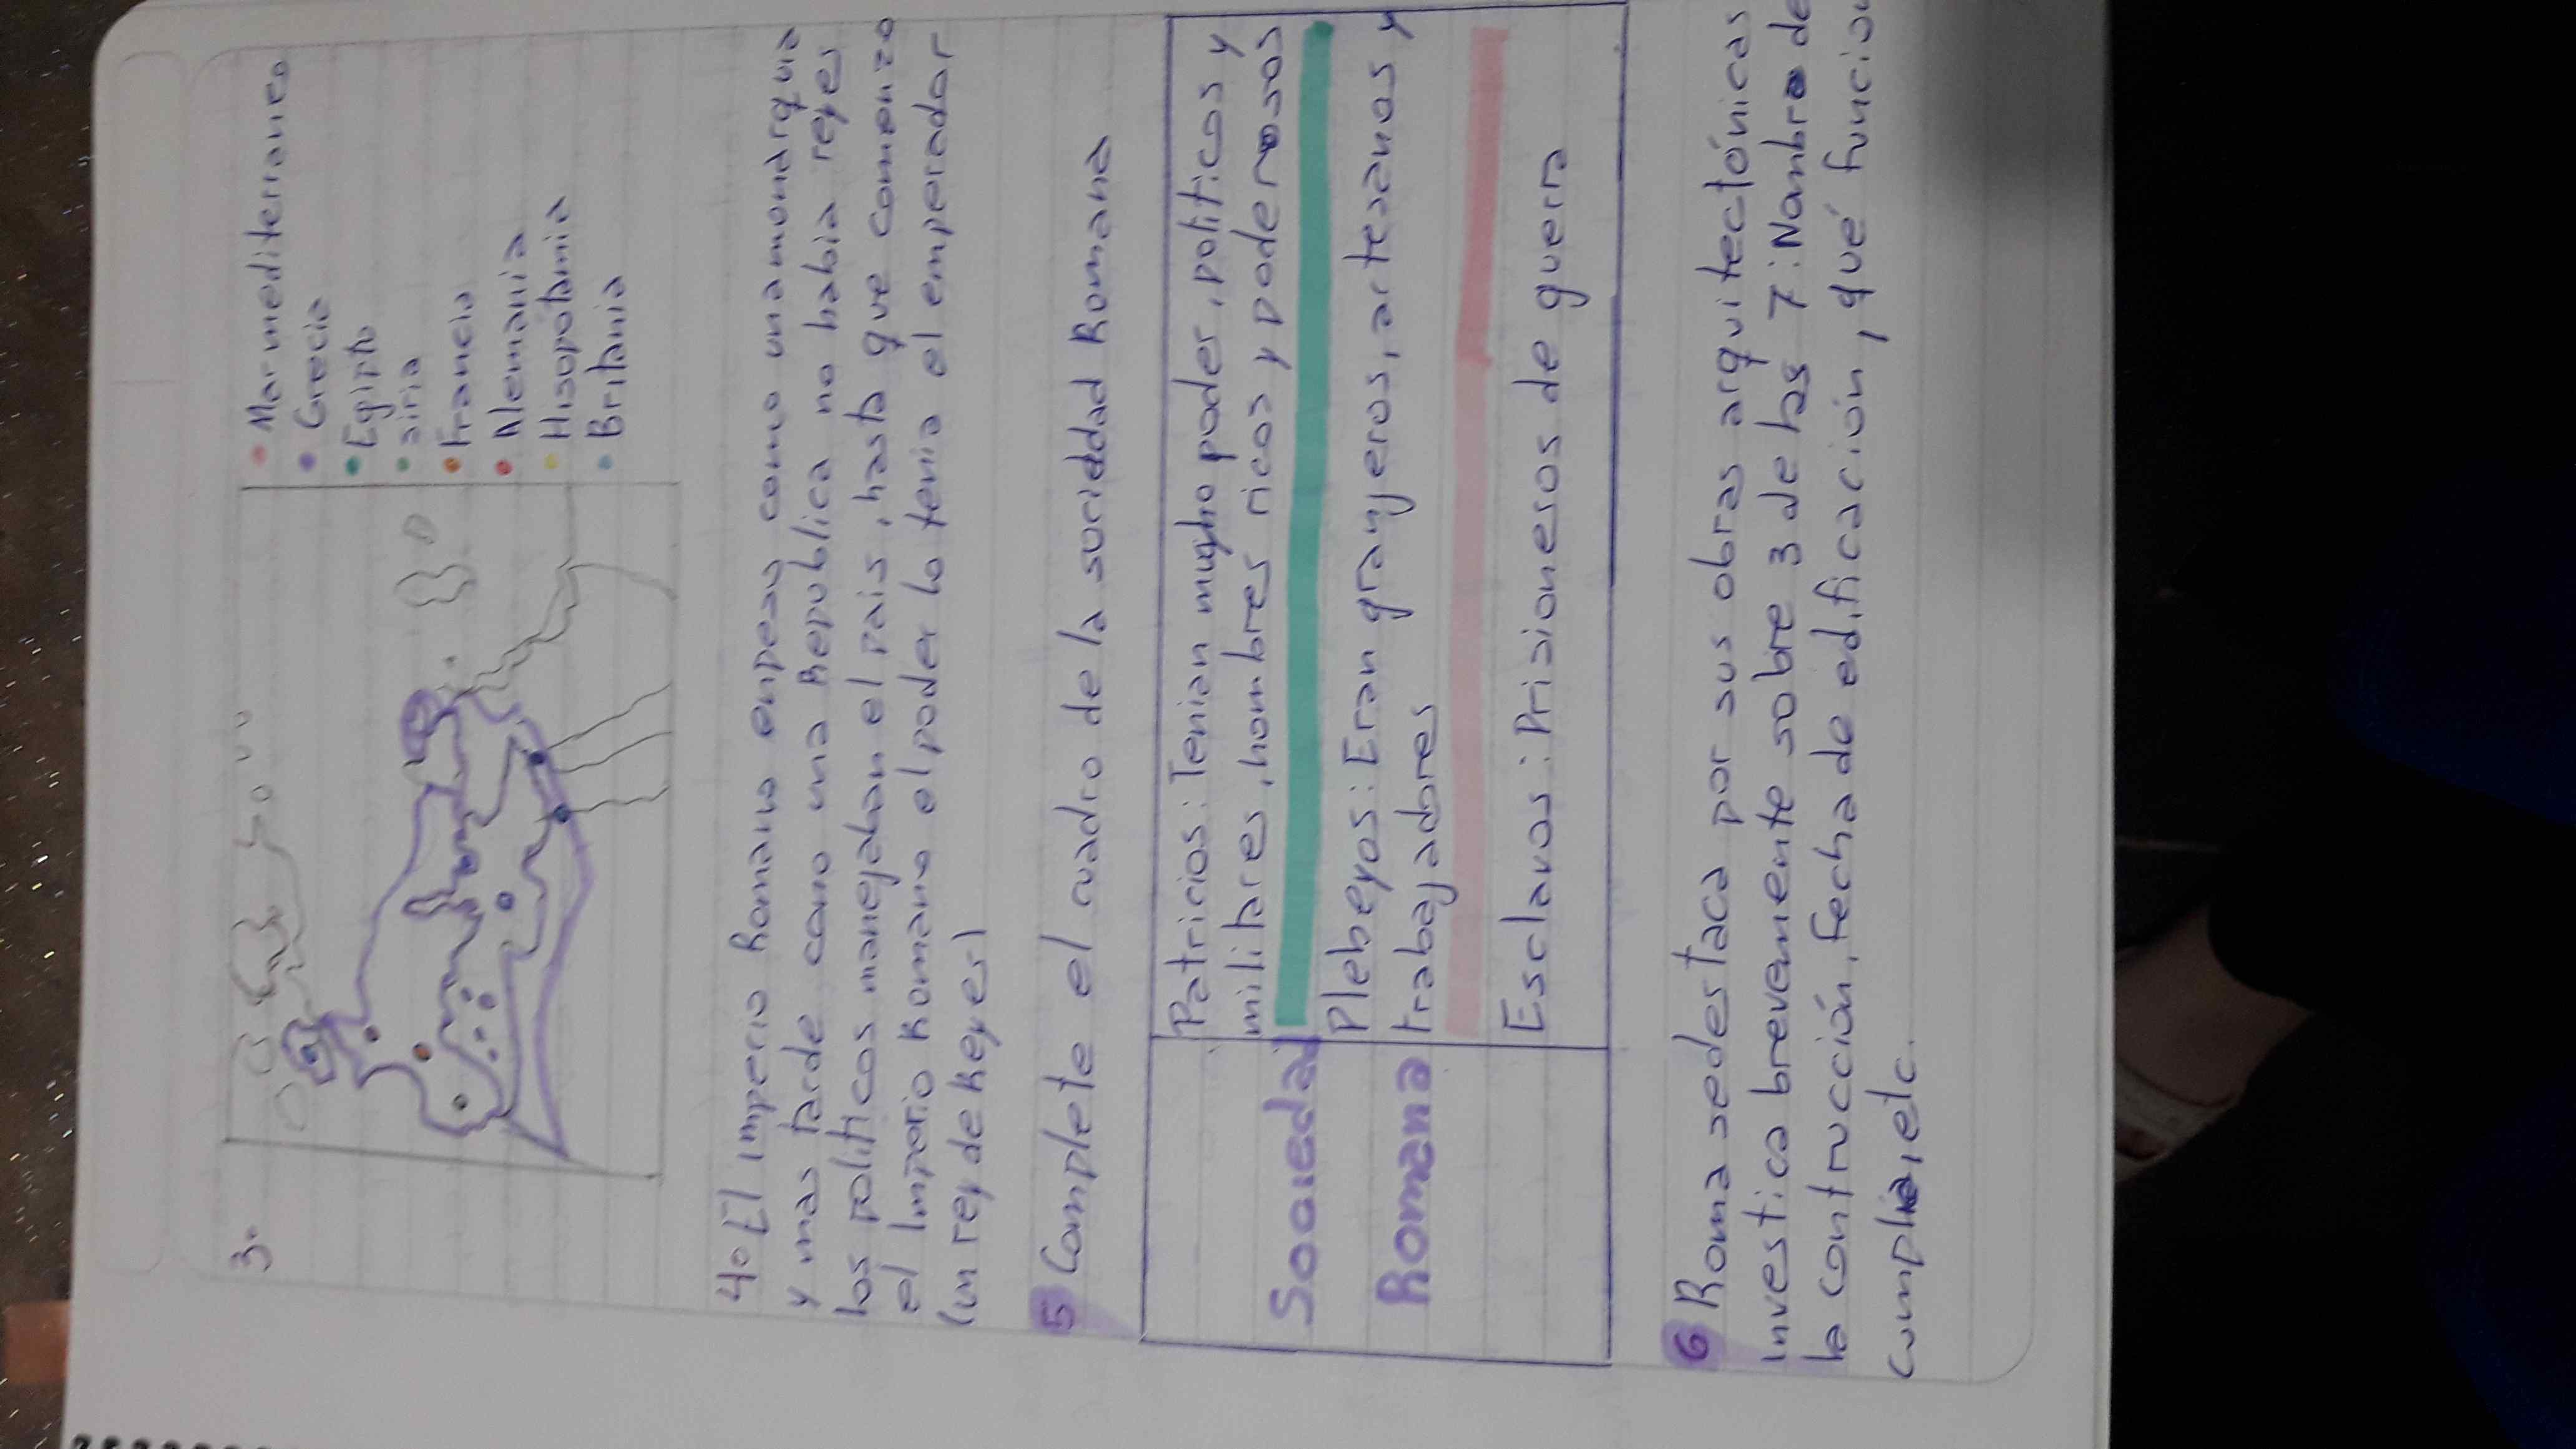 3.
Mar mediterraneo
Grecia
Egipto
siria
Francia
Alemania
Hisopotamia
Britania
4. El imperio Romano empezo como una monarquia
y mas tarde como una Republica no habia reyes
los politicos manejaban el pais, hasta que comenzo
el Imperio Romano el poder lo tenia el emperador
(un rey de Reyes)
5 Complete el cuadro de la sociedad Romana
Sociedad
Romana
Patricios: Tenian mucho poder, politicos y
militares, hombres ricos y poderosos
Plebeyos: Eran granjeros, artesanos y
trabajadores
Esclavos: Prisioneros de guerra
6 Roma se destaca por sus obras arquitectónicas
investica brevemente sobre 3 de las 7: Nombre de
la contrucción, fecha de edificación, qué funcion
cumplia, etc.